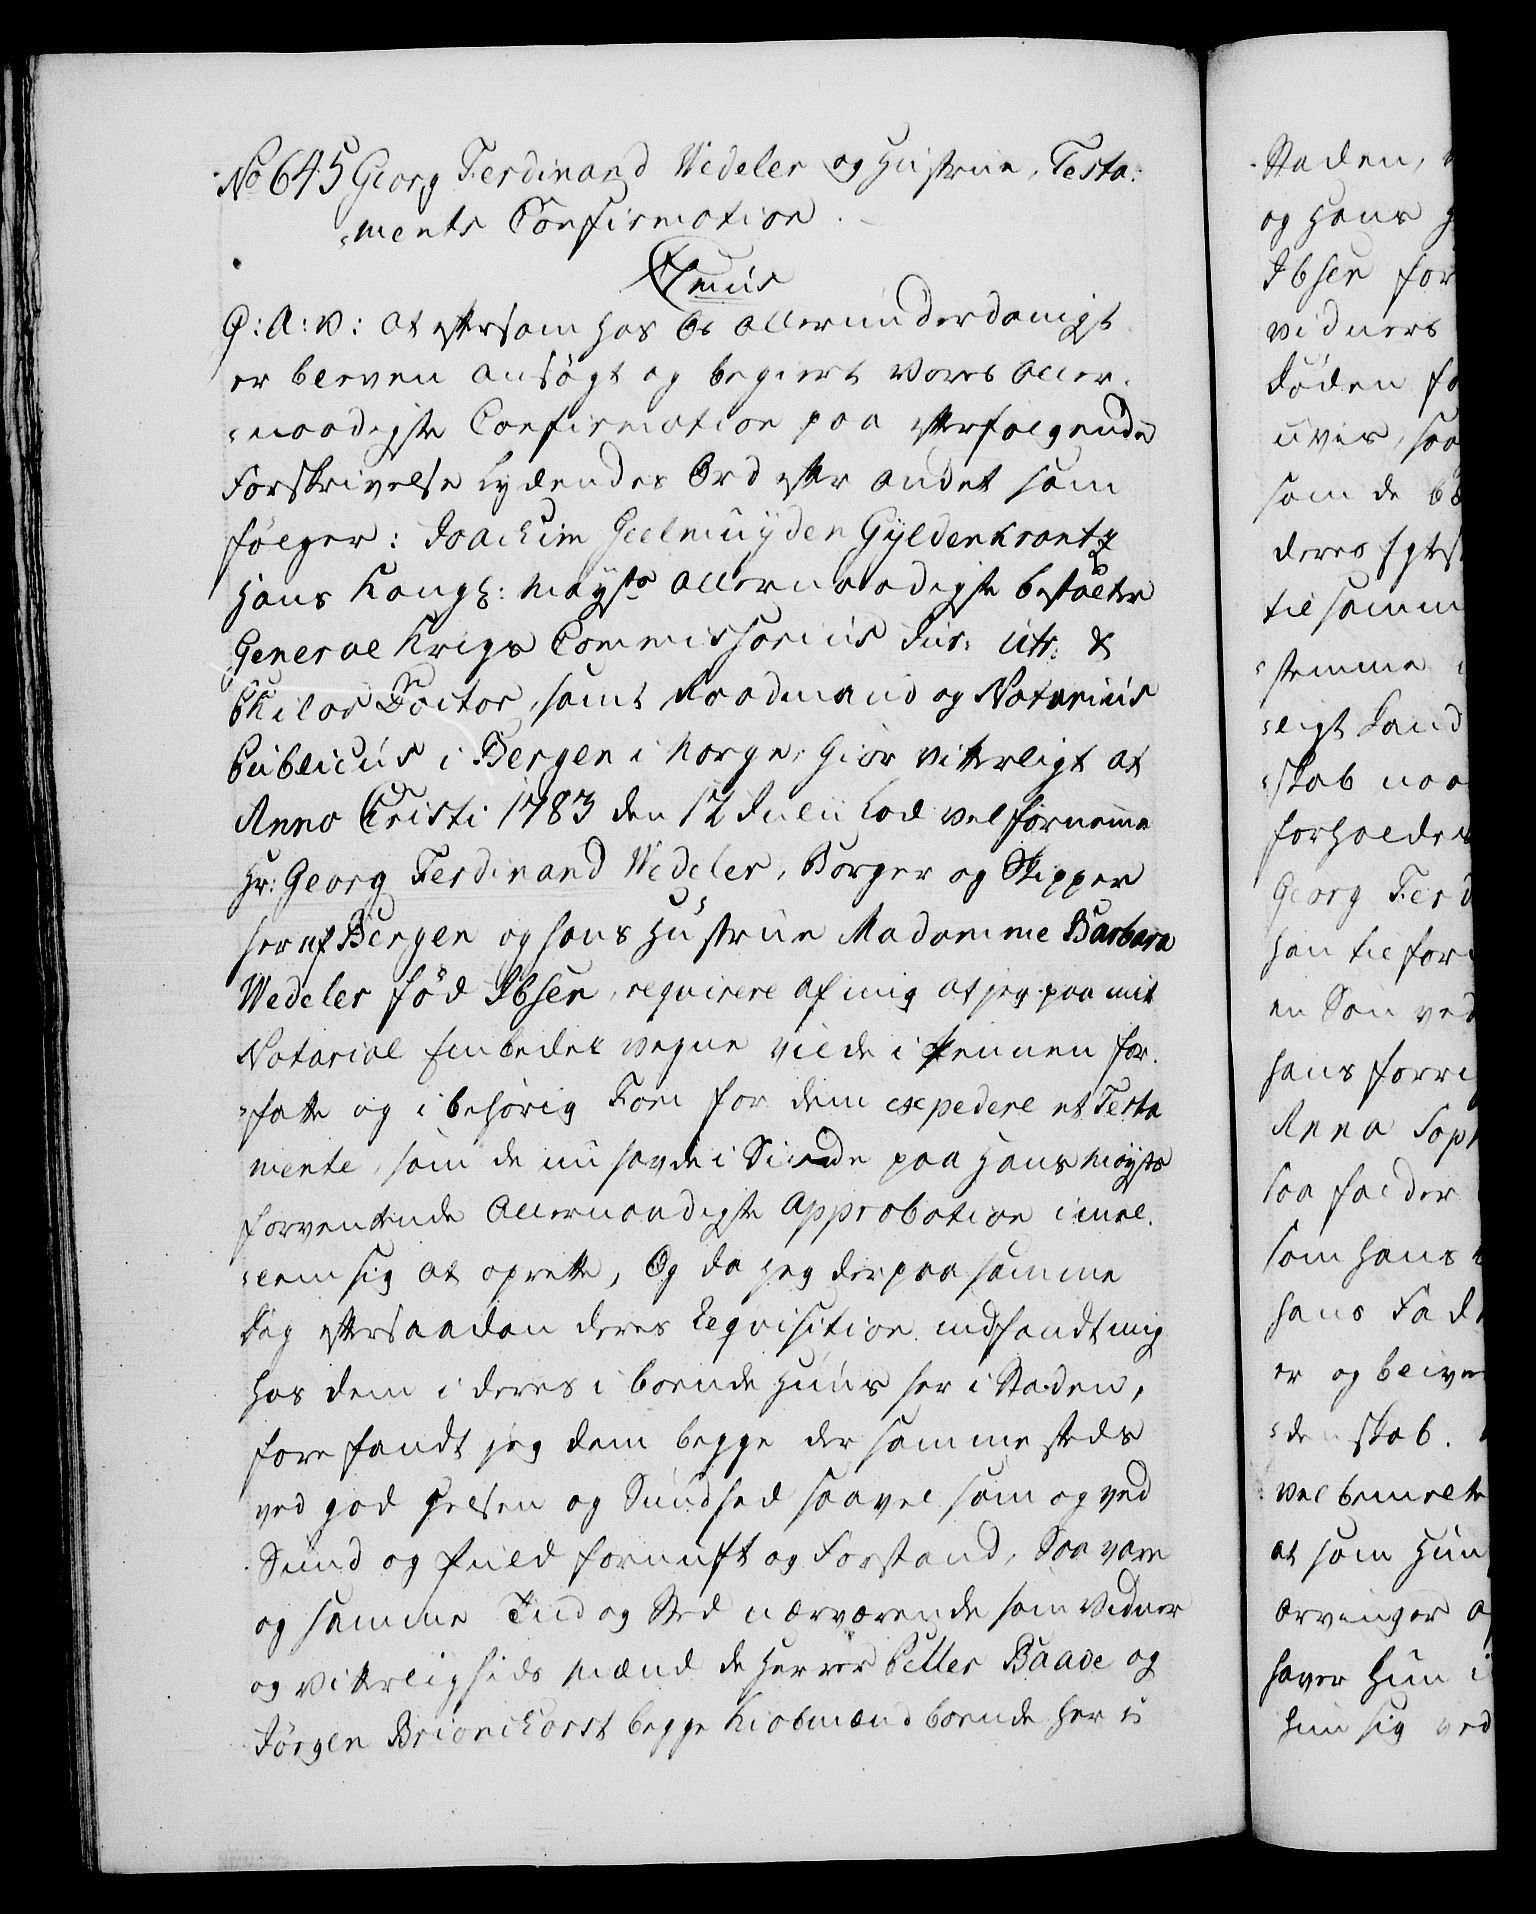 No 645 Georg Ferdinand Wedeler og Hustrue, Testa:
:ments Confirmation.
G: A: V: at eftersom hos Os allerunderdanigt
er bleven ansøgt og begiert Vores Aller:
:naadigste Confirmation paa efterfølgende
Forskrivelse Lydendes Ord efter andet som
følger: Joachim Geelmuyden Gyldenkrantz
Hans Kongl: Mayst allernaadigste bestalter
General Krigs Commissarius Jur: utr: &
Philos Doctor, samt Raadmand og Notarius
Publicus i Bergen i Norge, Giør vitterligt at
Anno Christi 1783 den 12 Julii Lod velfornemme
Hr: Georg Ferdinand Wedeler, Borger og Skipper
her af Bergen og hans Hustrue Madamme Barbara
Wedeler fød Ibsen, requirere af mig at jeg paa mit
Notarial Embedes vegne vilde i Pennen for:
:fatte og i behørig Form for dem expedere et Testa
mente, som de nu havde i Sinde paa Hans Mayst
forventende Allernaadigste Approbation imel:
:lem sig at oprette, Og da jeg derpaa samme
Dag eftersaadan deres Requisition indfandt mig
hos dem i deres i boende Huus her i Staden,
fore fandt jeg dem begge der sammesteds
ved god Helsen og Sundhed saavel som og ved
Sund og fuld fornuft og Forstand, Saa vare
og samme Tiid og Sted nærværende som Vidner
og Vitterligheds Mænd de Herrer Petter Baade og
Jørgen Brionchorst begge Kiøbmænd boende her i
Staden,
og Hans
Ibsen for
vidners
Døden
uvis, saa
som de
deres
tilsamm
:stemme
:ligt Land
:skab
forholder
Georg Ferd
han til for
en Søn ved
hans forri
Anna Soph
saa falder
som hans
hans Fad
er og bliver
:denskab.
velbemelte
at som Hun
Arvinger
haver Hun i
hun sig ved